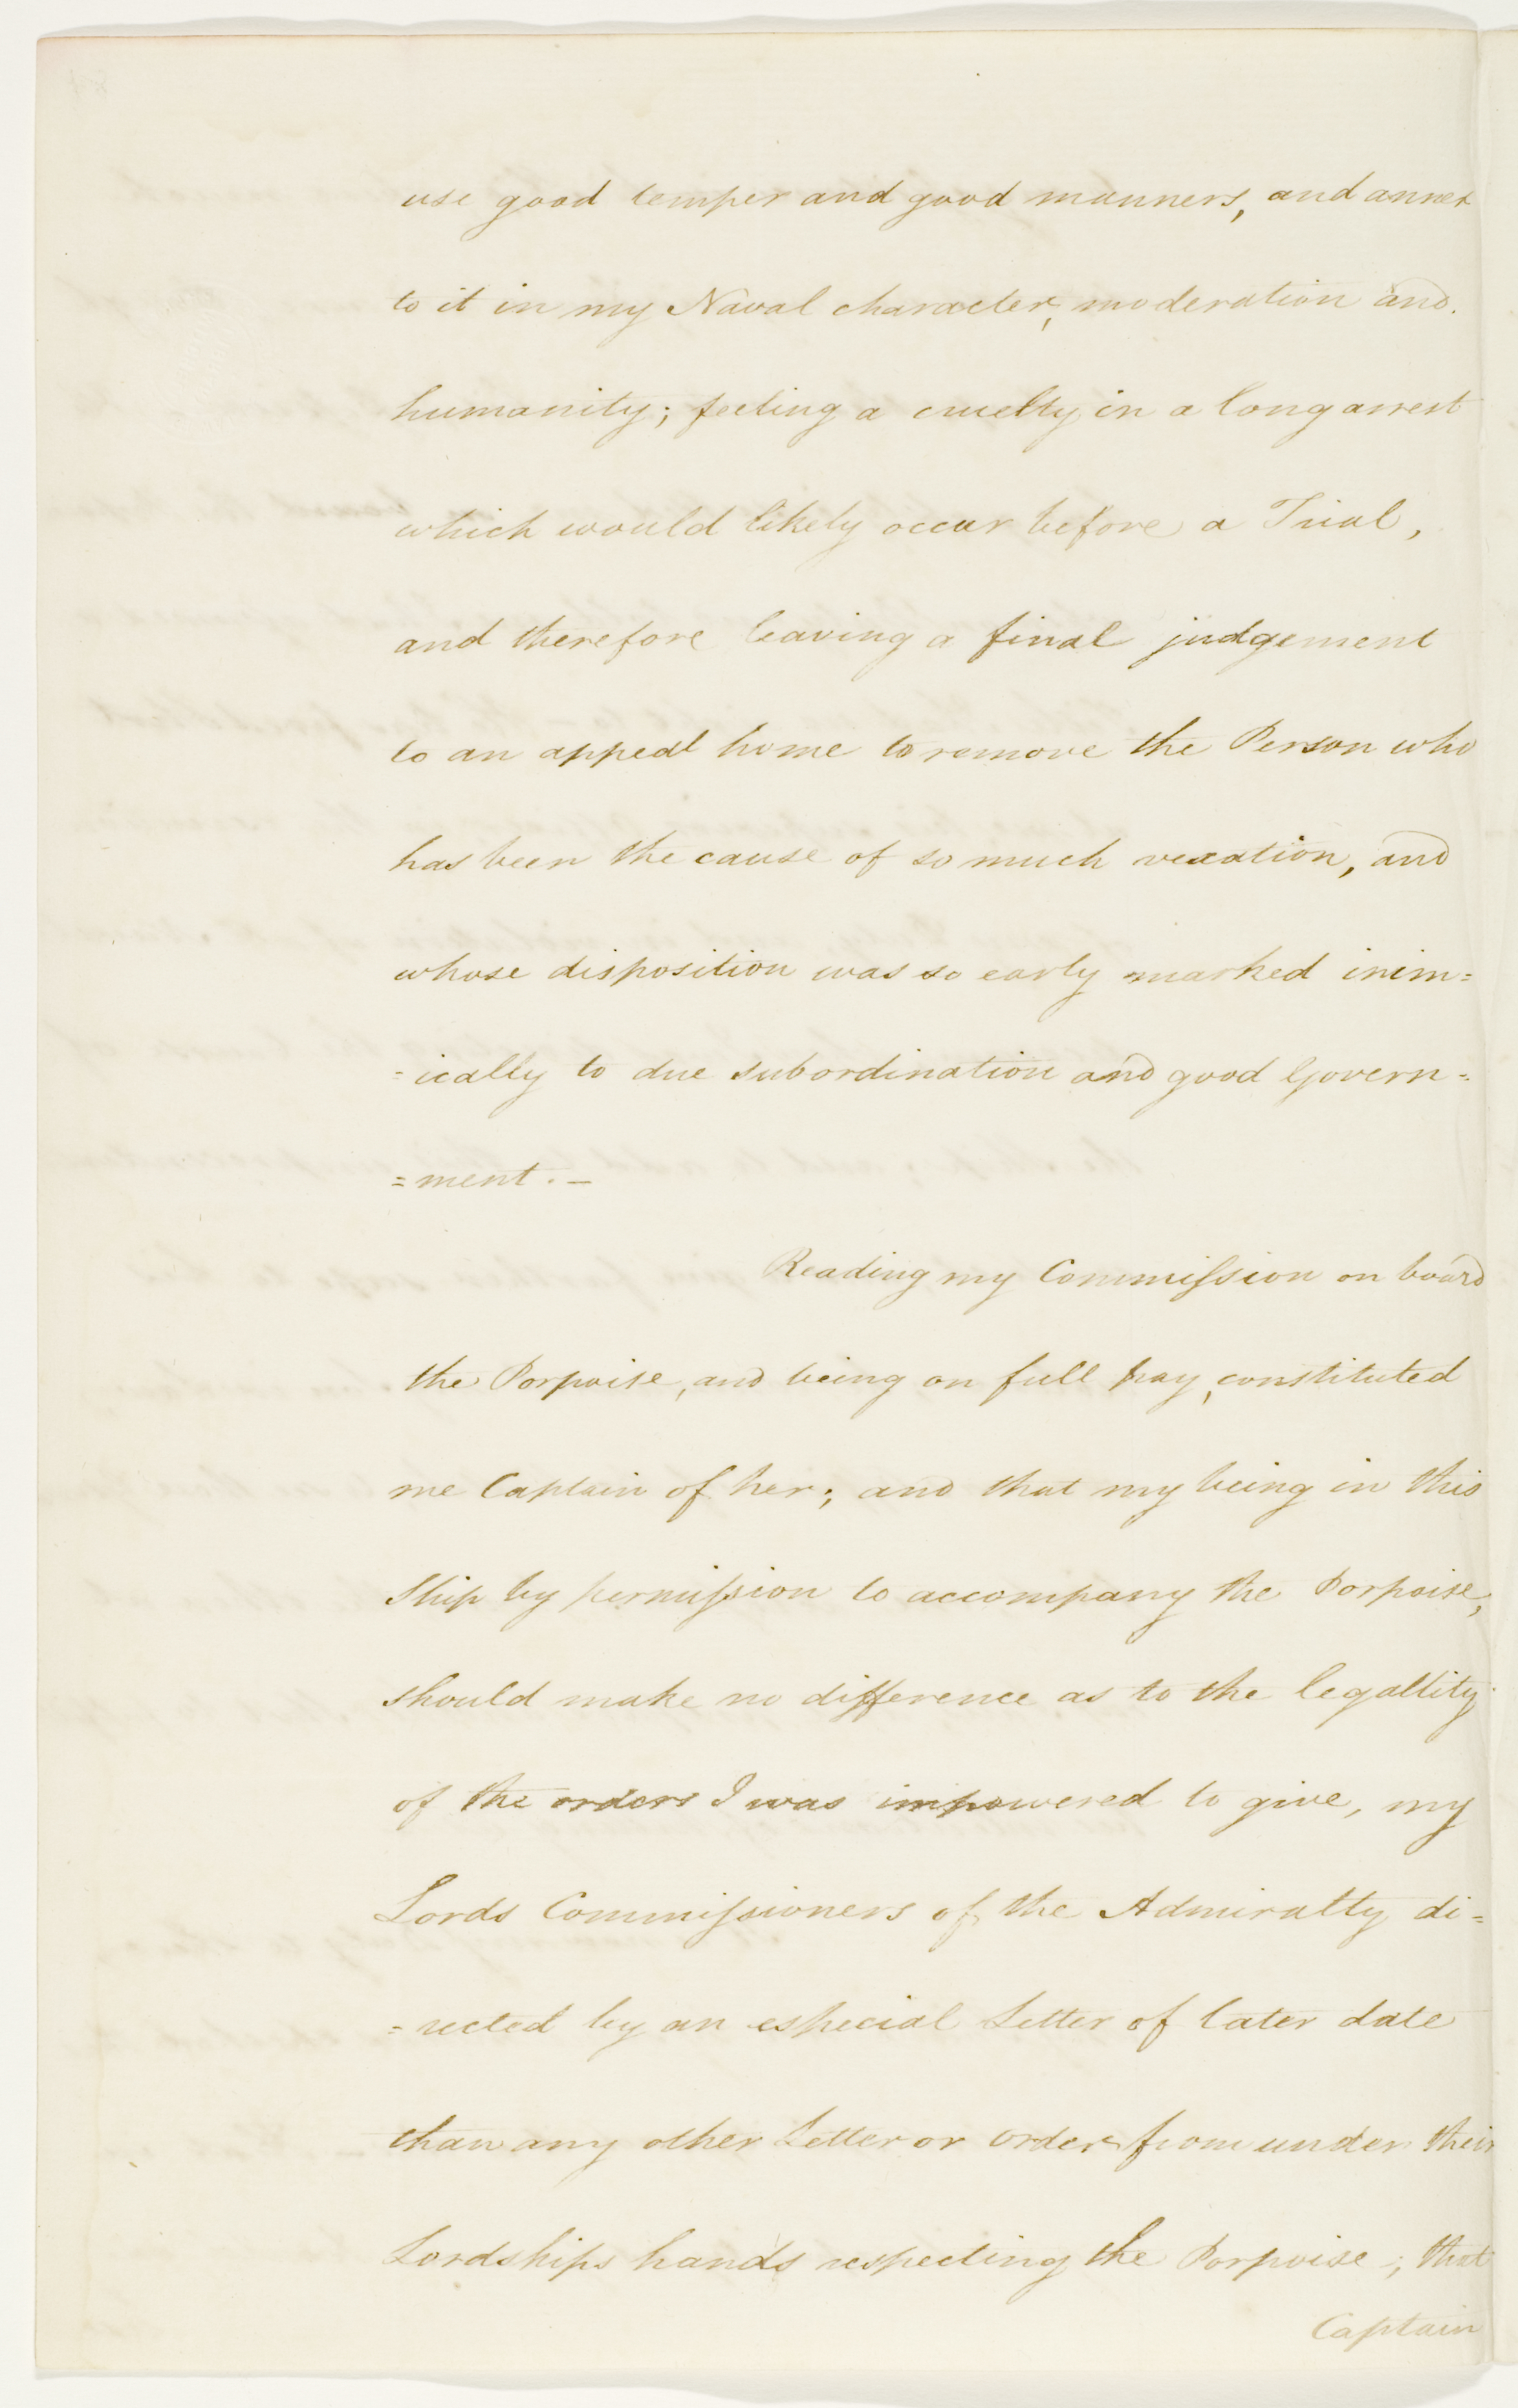 use good temper and good manners, and annex
to it in my Naval character, moderation and
humanity; feeling a cruelty in a long arrest
which would likely occur before a Trial,
and therefore leaving a final judgement
to an appeal home to remove the Person who
has been the cause of so much vexation, and
whose disposition was so early marked inim=
=ically to due subordination and good Govern=
=ment. –
Reading my Commission on board
the Porpoise, and being on full pay, constituted
me Captain of her; and that my being in this
Ship by permission to accompany the Porpoise,
should make no difference as to the legallity
of the orders I was impowered to give, my
Lords Commissioners of the Admiralty di=
=rected by an especial Letter of later date
than any other Letter or order from under their
Lordships hands respecting the Porpoise; that
Captain